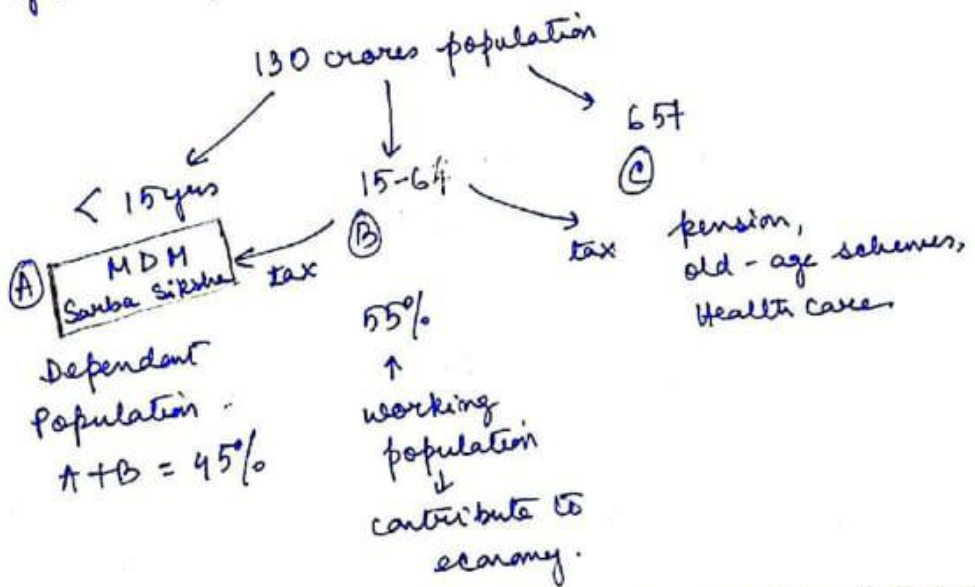 130 crores population
< 15 yrs
15-64
65+
Ⓐ
MDM
Sarba Siksha
tax
Ⓑ
tax
Ⓒ
pension,
old-age schemes,
Health care
Dependant
Population.
A+B = 45%
55%
↑
working
population
↓
contribute to
economy.